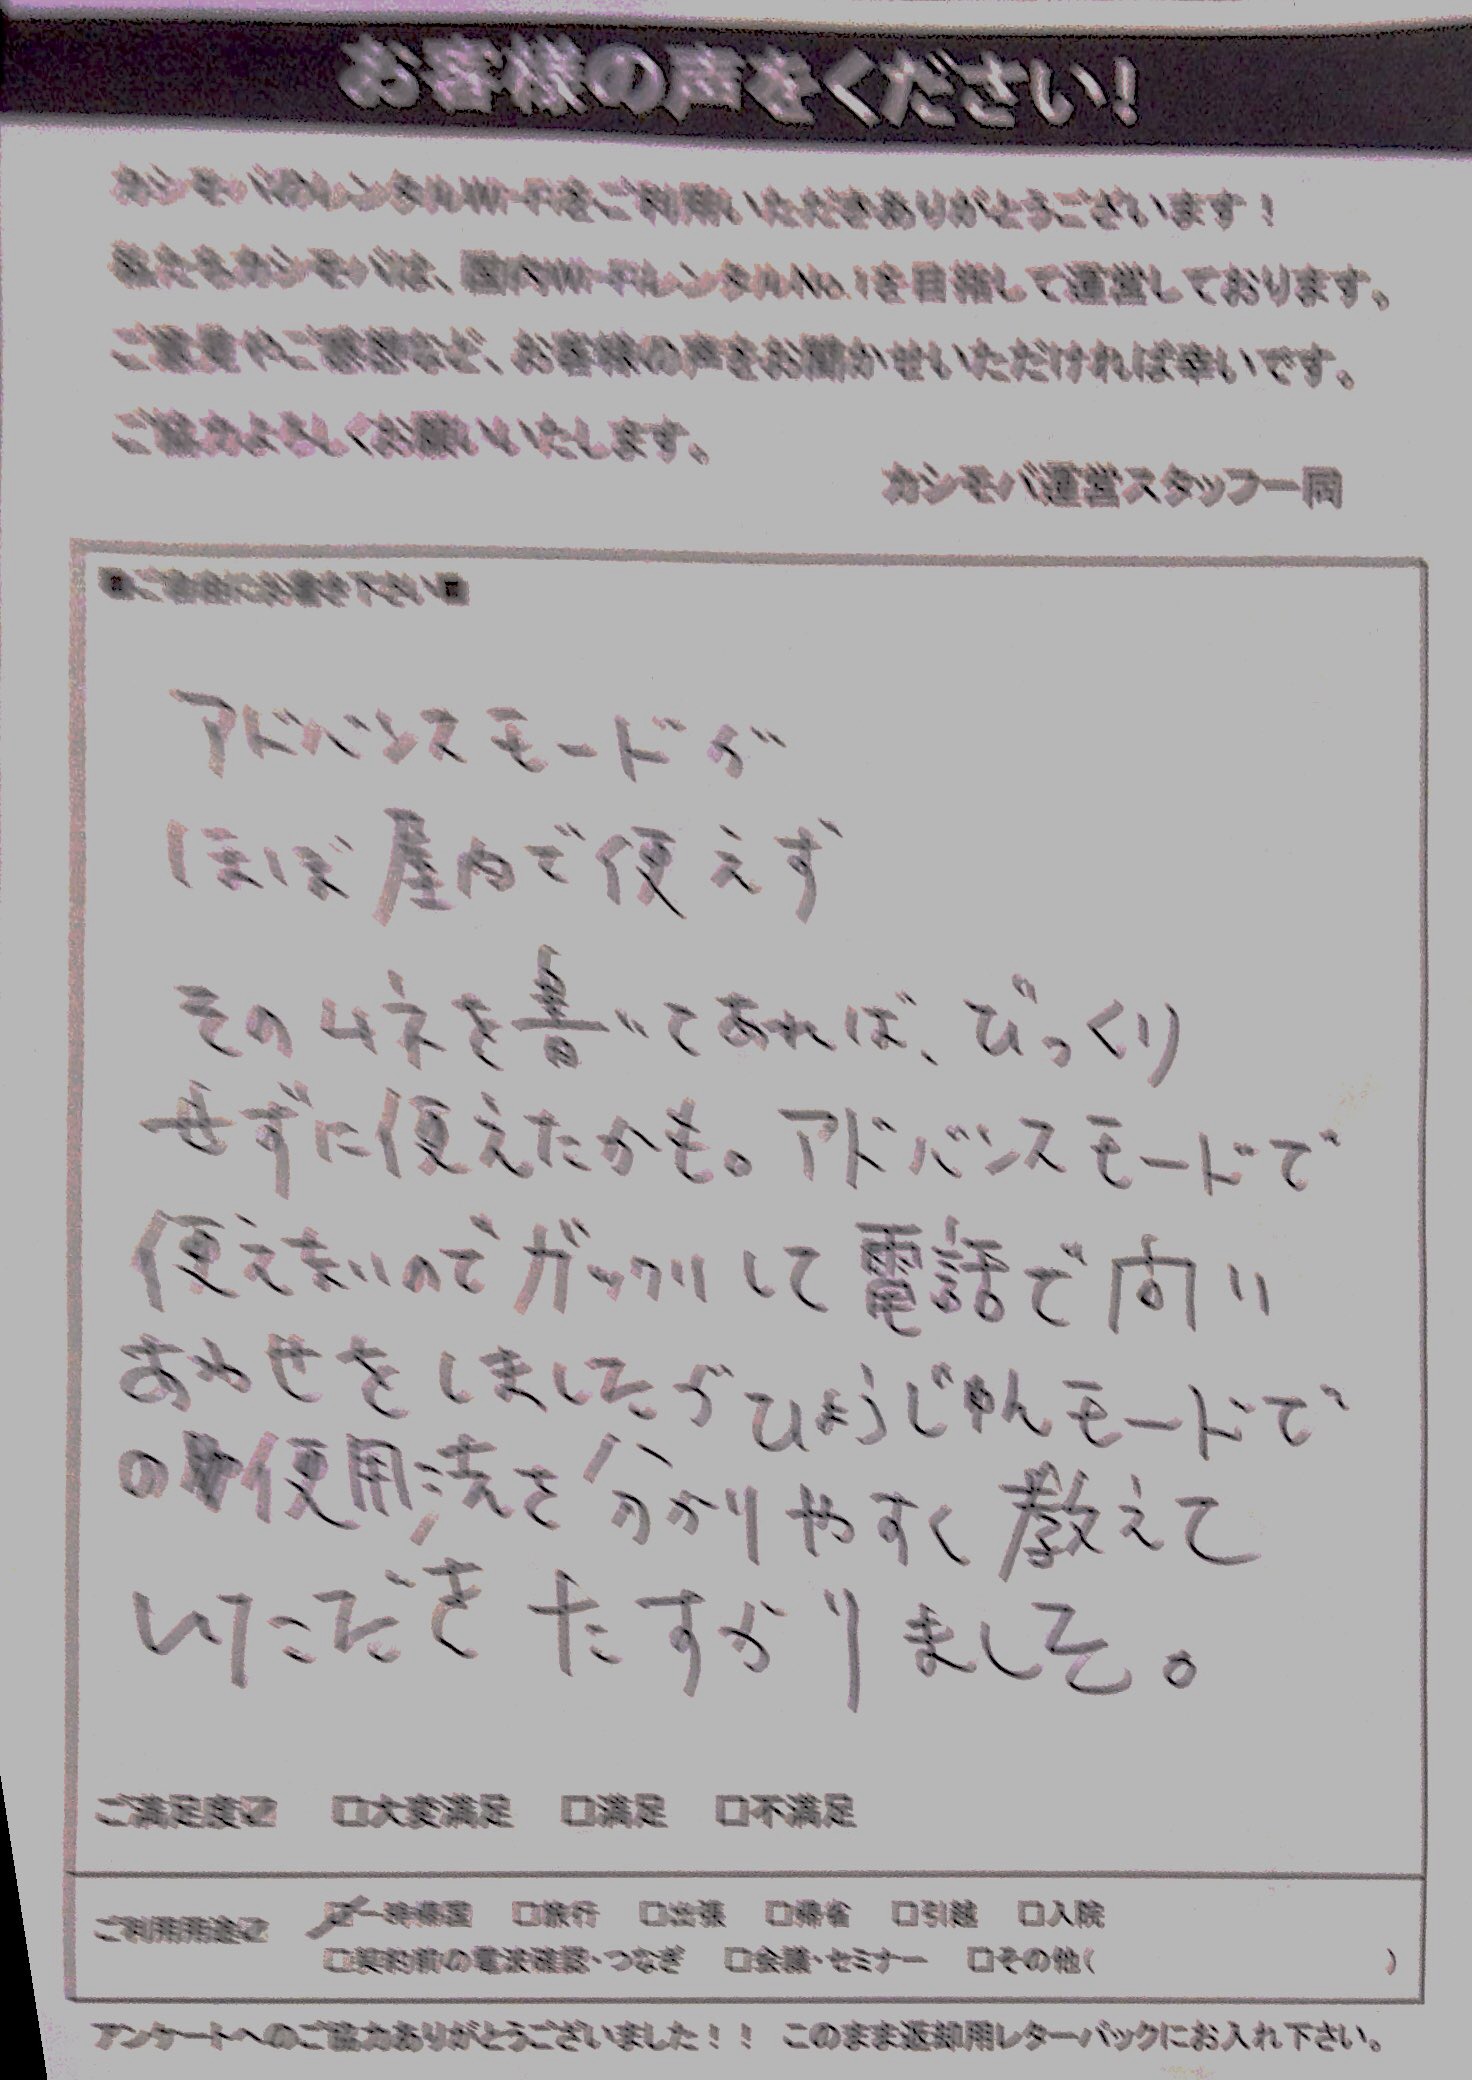 お客様の声をください！
カシモバのレンタルWi-Fiをご利用いただきありがとうございます！
私たちカシモバは、国内Wi-FiレンタルNo.1を目指して運営しております。
ご意見やご感想など、お客様の声をお聞かせいただければ幸いです。
ご協力よろしくお願いいたします。
カシモバ運営スタッフ一同
■ご自由にお書き下さい■
アドバンスモードが
ほぼ屋内で使えず
そのムネを書いてあれば、びっくり
せずに使えたかも。アドバンスモードで
使えないのでガックリして電話で問い
あわせをしましたがひょうじゅんモードで
の使用法を分かりやすく教えて
いただきたすかりました。
ご満足度☑ □大変満足 □満足 □不満足
ご利用用途☑ ☑一時帰国 □旅行 □出張 □帰省 □引越 □入院
□契約前の電波確認・つなぎ □会議・セミナー □その他( )
アンケートへのご協力ありがとうございました！！ このまま返却用レターパックにお入れ下さい。